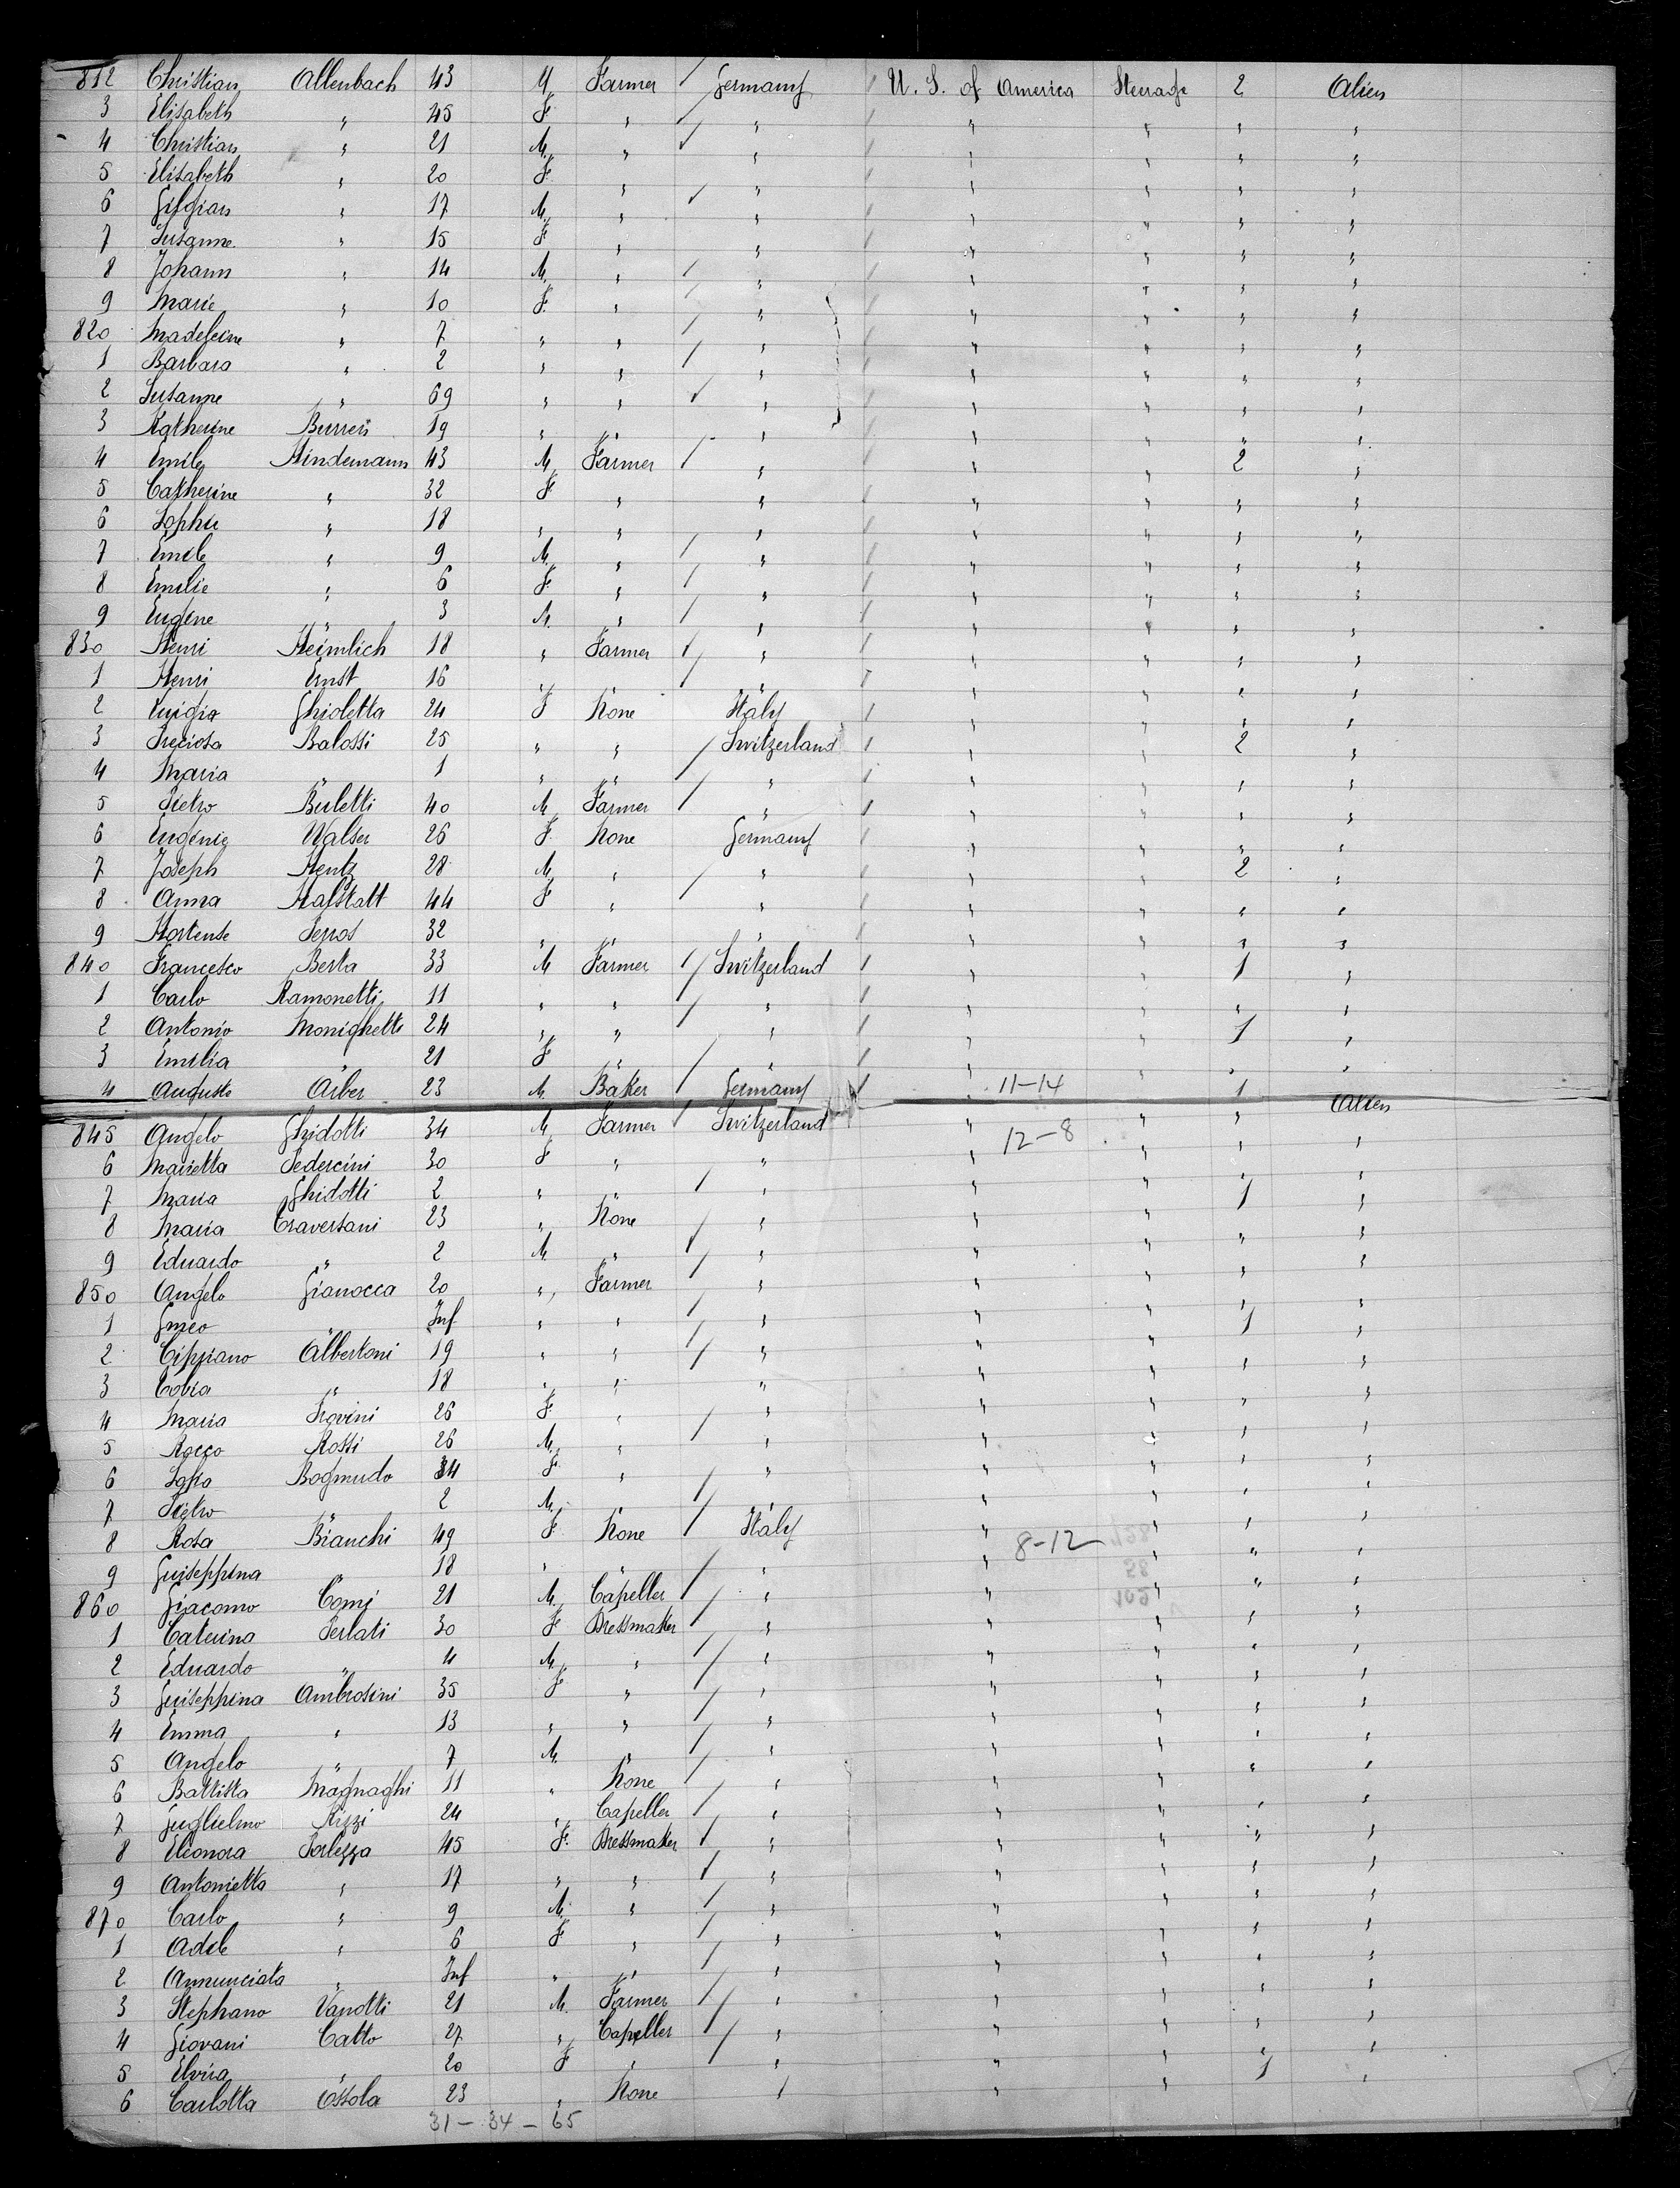 812 Christian Allenbach 43 M Farmer Germany U. S. of America Steerage 2 Alien
3 Elisabeth " 45 F " " " " " "
4 Christian " 21 M. " " " " " "
5 Elisabeth " 20 F " " " " " "
6 Gilgian " 17 M. " " " " " "
7 Susanne " 15 F " " " " " "
8 Johann " 14 M. " " " " " "
9 Marie " 10 F. " " " " " "
820 Madeleine " 7 " " " " " " "
1 Barbara " 2 " " " " " " "
2 Susanne " 69 " " " " " " "
3 Katherine 19 " " " " " " "
4 Emile Hindemann 43 M Farmer " " " 2 "
5 Catherine " 32 F " " " " " "
6 Sophie " 18 " " " " " " "
7 Emile " 9 M. " " " " " "
8 Emilie " 6 F. " " " " " "
9 Eugène " 3 M. " " " " " "
830 Henri Heimlich 18 " Farmer " " " " "
1 Henri Ernst 16 " " " " " " "
2 Luigia Ghioletta 24 F None Italy " " " "
3 Preciosa Balossi 25 " " Switzerland " " 2 "
4 Maria " 1 " " " " " " "
5 Pietro Buletti 40 M Farmer " " " " "
6 Eugénie Walser 26 F. None Germany " " " "
7 Joseph Hentz 28 M " " " " 2 "
8 Anna Halstatt 44 F " " " " " "
9 Hortense 32 " " " " " " "
840 Francesco Berta 33 M Farmer Switzerland " " 1 "
1 Carlo Ramonetti 11 " " " " " " "
2 Antonio Monighetti 24 " " " " " 1 "
3 Emilia " 21 F " " " " " "
4 Augusto Arber 23 M Baker Germany " 11-14 " 1 Alien
845 Angelo Ghidotti 34 M Farmer Switzerland " 12-8 " " "
6 Marietta Pedercini 30 F " " " " " "
7 Maria Ghidotti 2 " " " " " 1 "
8 Maria Traversani 23 " None " " " " "
9 Eduardo " 2 M " " " " " "
850 Angelo Gianocca 20 " Farmer " " " " "
1 " Inf " " " " " 1 "
2 Cipriano Albertoni 19 " " " " " " "
3 Tobia " 18 " " " " " " "
4 Maria 26 F. " " " " " "
5 Rocco Rossi 26 M. " " " " " "
6 Bogmudo F. " " " " " "
7 Pietro " 2 M. " " " " " "
8 Rosa Bianchi 49 F None Italy " 8-12 " " "
9 Guiseppina " 18 " " " " " " "
860 Giacomo Comi 21 M. Capeller " " " " "
1 Caterina Perlati 30 F Dressmaker " " " " "
2 Eduardo " 4 M. " " " " " "
3 Guiseppina Ambrosini 35 F " " " " " "
4 Emma " 13 " " " " " " "
5 Angelo " 7 M. " " " " " "
6 Battista Magnaghi 11 " None " " " " "
7 Guglielmo Rizzi 24 " Capeller " " " " "
8 Eleonora Porlezza 45 F. Dressmaker " " " " "
9 Antonietta " 17 " " " " " " "
870 Carlo " 9 M. " " " " " "
1 Adele " 6 F " " " " " "
2 Annunciata " Inf " " " " " " "
3 Stephano Vanotti 21 M. Farmer " " " " "
4 Giovani Catto 27 " Capeller " " " " "
5 Elvira " 20 F " " " " 1 "
6 Carlotta Ossola 23 " None " " " "
31 - 34 - 65